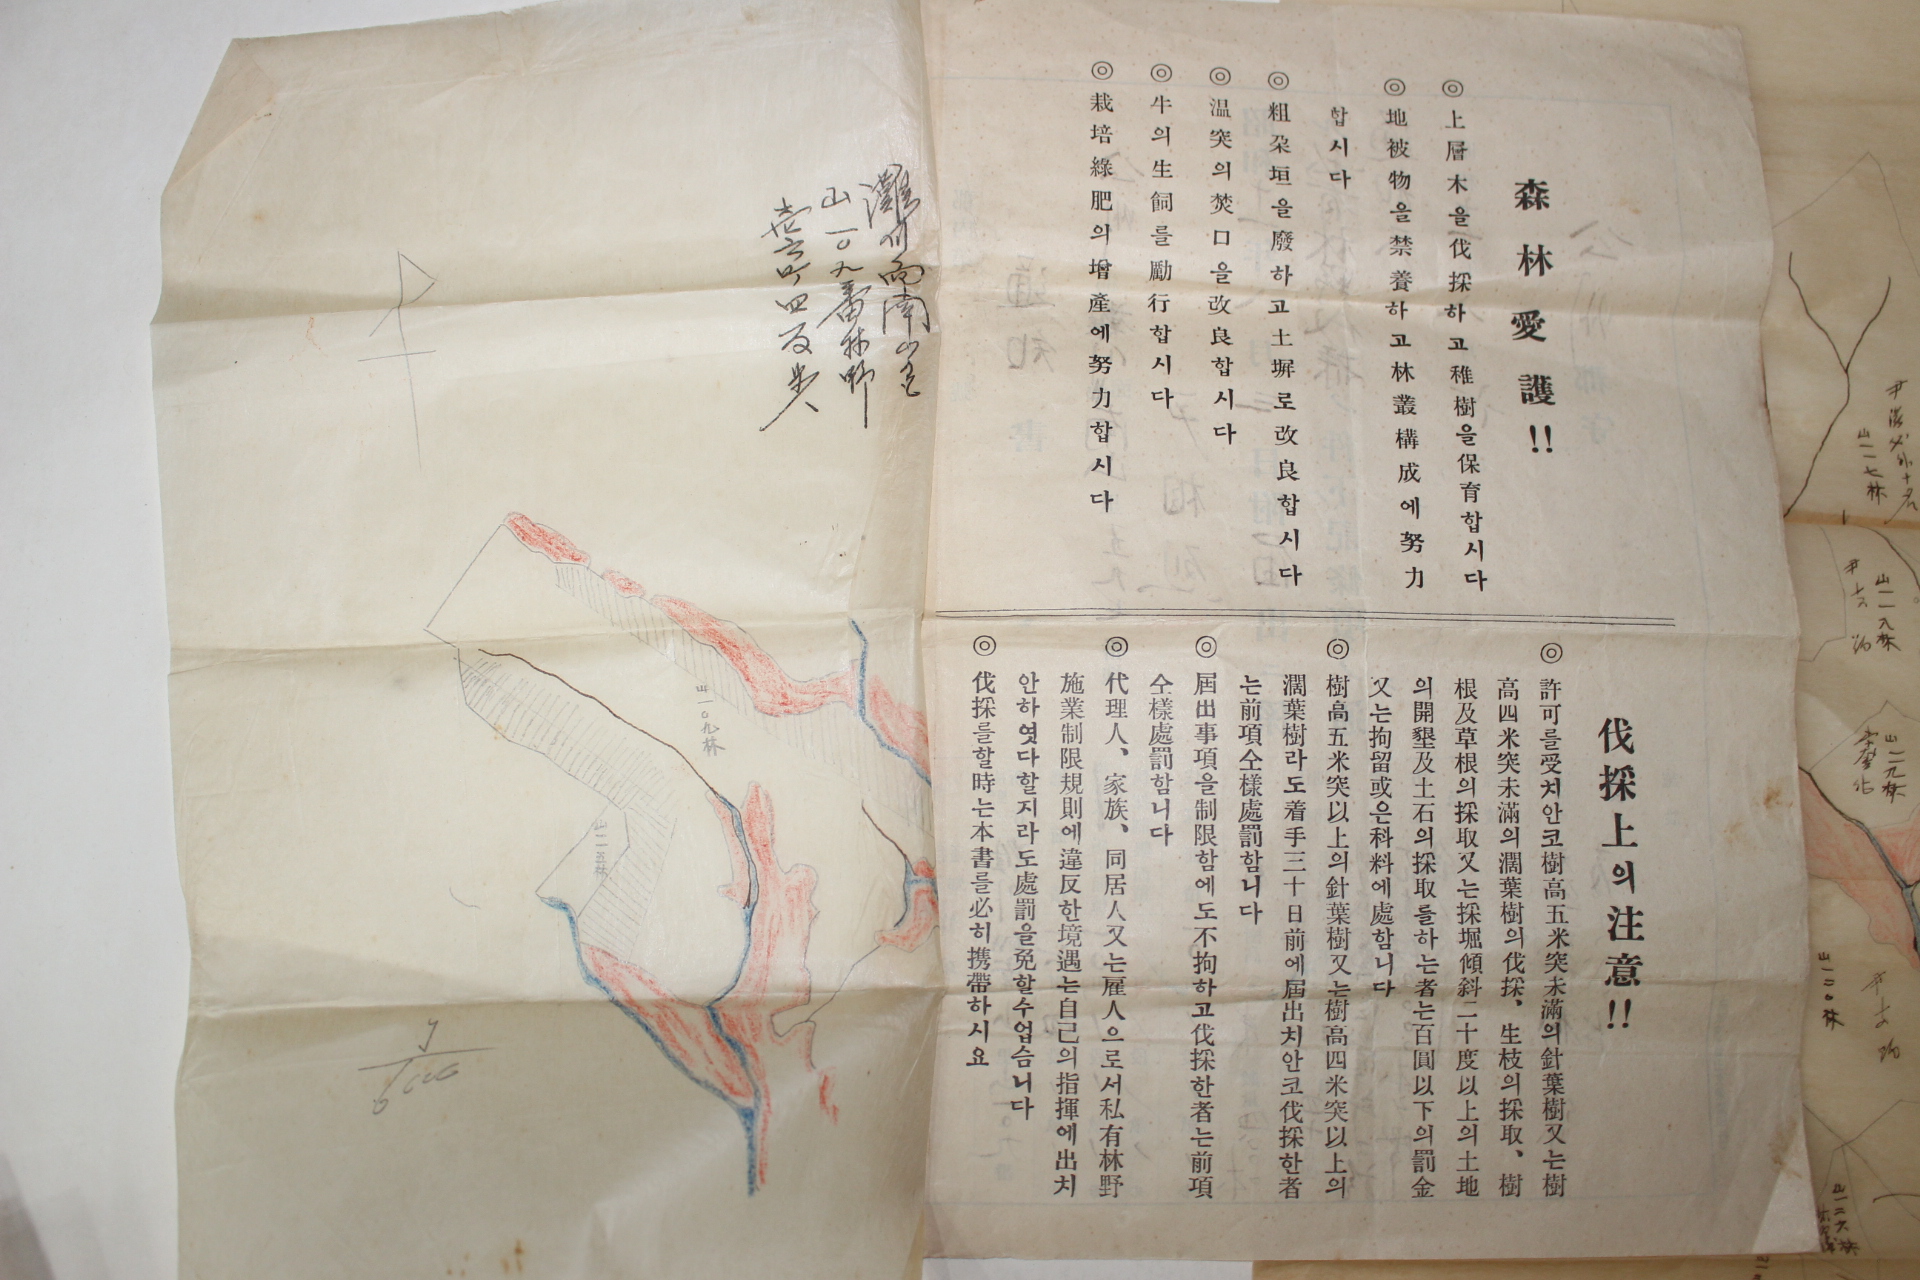 森林愛護!!
◎上層木을伐採하고稚樹을保育합시다
◎地被物을禁養하고林叢構成에努力
합시다
◎粗朶垣을廢하고土塀로改良합시다
◎温突의焚口을改良합시다
◎牛의生飼를勵行합시다
◎栽培綠肥의增產에努力합시다
伐採上의注意!!
◎許可를受치안코樹高五米突未滿의針葉樹又는樹
高四米突未滿의濶葉樹의伐採、生枝의採取、樹
根及草根의採取又는採堀傾斜二十度以上의土地
의開墾及土石의採取를하는者는百圓以下의罰金
又는拘留或은科料에處함니다
◎樹高五米突以上의針葉樹又는樹高四米突以上의
濶葉樹라도着手三十日前에屆出치안코伐採한者
는前項仝樣處罰함니다
◎屆出事項을制限함에도不拘하고伐採한者는前項
仝樣處罰함니다
◎代理人、家族、同居人又는雇人으로서私有林野
施業制限規則에違反한境遇는自己의指揮에出치
안하엿다할지라도處罰을免할수업슴니다
◎伐採를할時는本書를必히携帶하시요
灘川面南山里
山一〇九番林野
壹六町四反步
山一〇九林
山一一五林
山一一七林
山一一八林
山一一九林
山一二〇林
山一二六林